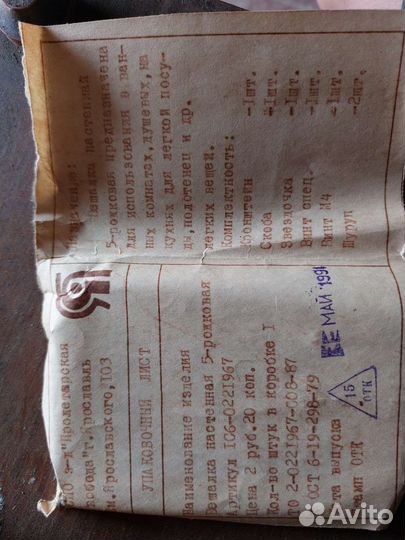 ПО з-д "Пролетарская
вобода" г.Ярославль
м.Ярославского,103
УПАКОВОЧНЫЙ ЛИСТ
Наименование изделия
Вешалка настенная 5-рожковая
Артикул 1С6-0221967
Цена 2 руб.20 коп.
Кол-во штук в коробке 1
ПО 2-0221967-006-87
ОСТ 6-19-296-79
та выпуска
МАЙ 1991
амп ОТК
15
ОТК
Назначение:
Вешалка настенная
5-рожковая предназначена
для использования в ван-
ных комнатах,душевых,на
кухнях для легкой посу-
ды,полотенец и др.
легких вещей.
Комплектность:
Кронштейн -1шт.
Скоба -1шт.
Звездочка -1шт.
Винт спец. -1шт.
Винт М4 -1шт.
Шуруп -2шт.
Avito